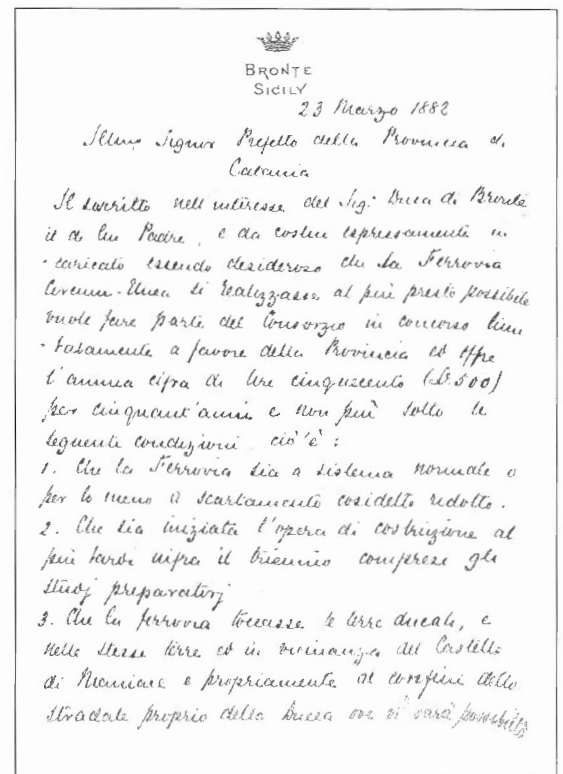 BRONTE
SICILY
23 Marzo 1882
Illmo Signor Prefetto della Provincia di
Catania
Il sacritto nell'interesse del Sig: Duca di Bronte
il di lui Padre, e da costui espressamente in
-caricato essendo desideroso che la Ferrovia
Circum-Etnea si realizzasse al più presto possibile
vuole fare parte del Consorzio in concorso limi
-tatamente a favore della Provincia ed offre
l'annua cifra di lire cinquecento (L. 500)
per cinquant'anni e non più sotto le
seguente condizioni ciò'è:
1. Che la Ferrovia sia a sistema normale o
per lo meno a scartamento cosidetto ridotto.
2. Che sia iniziata l'opera di costruzione al
più tardi infra il triennio comprese gli
studj preparatorj
3. Che la ferrovia toccasse le terre ducali, e
nelle stesse terre ed in vicinanza del Castello
di Maniace e propriamente al confine dello
stradale proprio della Ducea ove vi sarà possibile